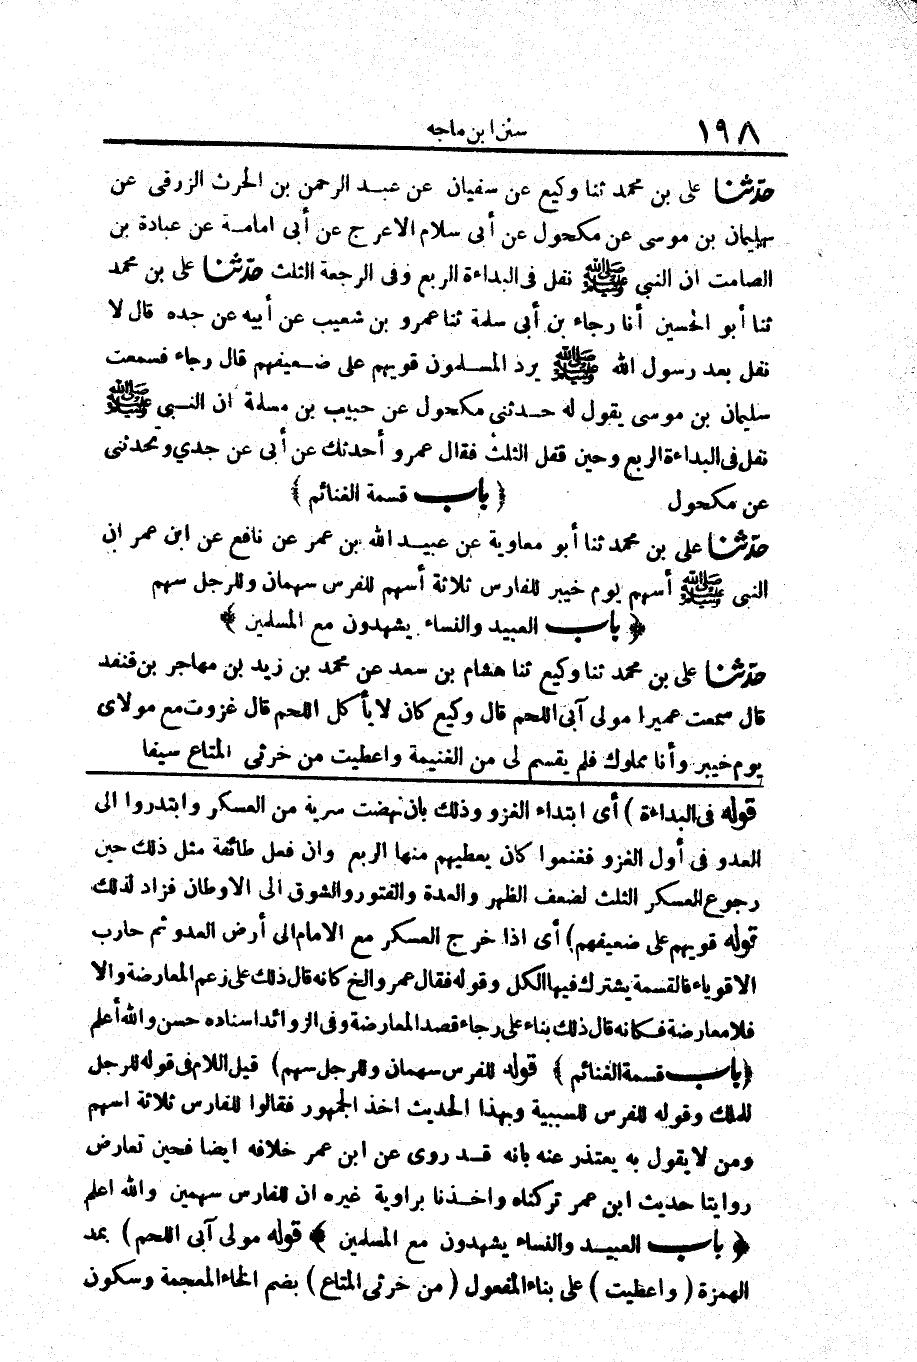 ١٩٨ سنن ابن ماجه
حدّثنا على بن محمد ثنا وكيع عن سفيان عن عبد الرحمن بن الحرث الزرقى عن
سليمان بن موسى عن مكحول عن أبى سلام الاعرج عن أبى امامة عن عبادة بن
الصامت ان النبي ﷺ نفل فى البداءة الربع وفى الرجعة الثلث حدّثنا على بن محمد
ثنا أبو الحسين أنا رجاء بن أبى سلمة ثنا عمرو بن شعيب عن أبيه عن جده قال لا
نفل بعد رسول الله ﷺ يرد المسلمون قويهم على ضعيفهم قال رجاء فسمعت
سليمان بن موسى يقول له حدثنى مكحول عن حبيب بن مسلمة ان النبي ﷺ
نفل فى البداءة الربع وحين قفل الثلث فقال عمرو أحدثك عن أبى عن جدي وتحدثنى
عن مكحول ﴿ باب قسمة الغنائم ﴾
حدّثنا على بن محمد ثنا أبو معاوية عن عبيد الله بن عمر عن نافع عن ابن عمر ان
النبى ﷺ أسهم يوم خيبر للفارس ثلاثة أسهم للفرس سهمان وللرجل سهم
﴿ باب العبيد والنساء يشهدون مع المسلمين ﴾
حدّثنا على بن محمد ثنا وكيع ثنا هشام بن سعد عن محمد بن زيد بن مهاجر بن قنفد
قال سمعت عميرا مولى آبى اللحم قال وكيع كان لا يأكل اللحم قال غزوت مع مولاى
يوم خيبر وأنا مملوك فلم يقسم لى من الغنيمة واعطيت من خرثى المتاع سيفا
قوله فى البداءة ) أى ابتداء الغزو وذلك بان نهضت سرية من العسكر وابتدروا الى
العدو فى أول الغزو فغنموا كان يعطيهم منها الربع وان فعل طائفة مثل ذلك حين
رجوع العسكر الثلث لضعف الظهر والعدة والفتور والشوق الى الاوطان فزاد لذلك
قوله قويهم على ضعيفهم) أى اذا خرج العسكر مع الامام الى أرض العدو ثم حارب
الاقوياء فالقسمة يشترك فيها الكل وقوله فقال عمر والخ كانه قال ذلك على زعم المعارضة والا
فلا معارضة فكانه قال ذلك بناء على رجاء قصد المعارضة وفى الزوائد اسناده حسن والله أعلم
﴿ باب قسمة الغنائم ﴾ قوله للفرس سهمان وللرجل سهم) قيل اللام فى قوله للرجل
للملك وقوله للفرس للسببية وبهذا الحديث اخذ الجمهور فقالوا للفارس ثلاثة اسهم
ومن لا يقول به يعتذر عنه بانه قد روى عن ابن عمر خلافه ايضا فحين تعارض
روايتا حديث ابن عمر تركناه واخذنا براوية غيره ان للفارس سهمين والله اعلم
﴿ باب العبيد والنساء يشهدون مع المسلمين ﴾ قوله مولى آبى اللحم ) بمد
الهمزة ( واعطيت ) على بناء المفعول ( من خرثى المتاع ) بضم الخاء المعجمة وسكون